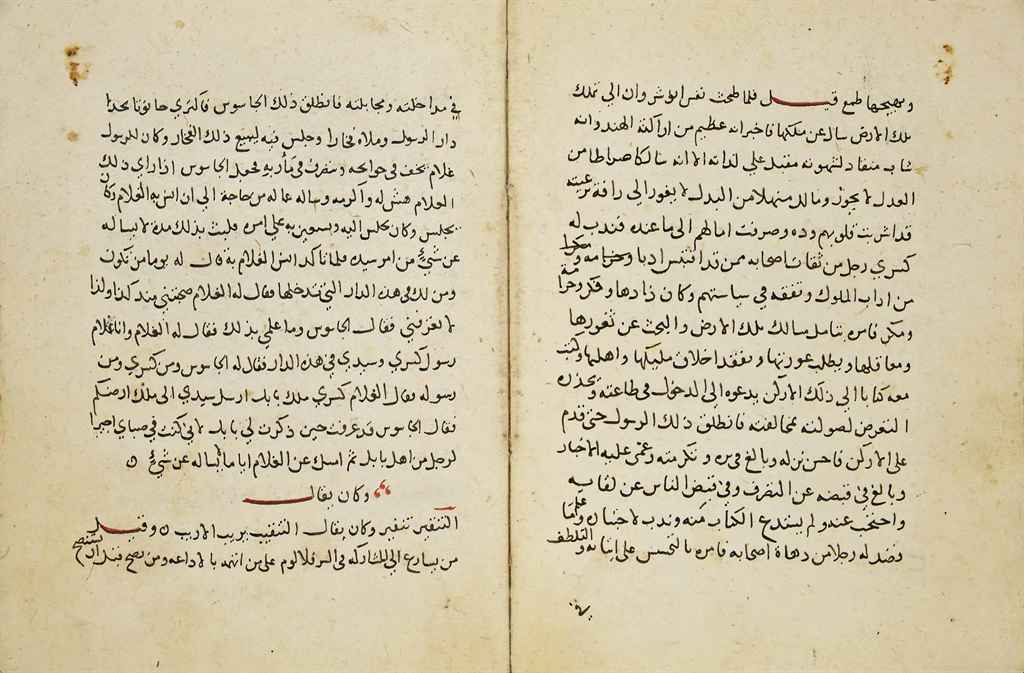 ويهيجها طمع قيل فلما طمحت نفس انوشروان الى تملك
تلك الارض سال عن ملكها فاخبر انه عظيم من اراكنة الهند وانه
شاب منقاد لشهوته مقبل على لذاته الا انه سالك صراطا من
العدل لا يجوز وما لد منهلا من البدل لا يغور الى رافة برعيته
قد اشربت قلوبهم وده وصرفت امالهم الى ما عنده فندب له
كسرى رجل من ثقات اصحابه ممن قد اقتبس ادبا
من اداب الملوك وتفقه في سياستهم وكان ذا دهاء وفكر وحزامة
ومكر فامره بتامل مسالك تلك الارض والبحث عن ثغورها
ومعاقلها وبطلب عورتها وبفقد اخلاق مليكها واهلها وكتب
معه كتابا الى ذلك الاركن يدعوه الى الدخول في طاعته ويحذره
التعرض لصولته بمخالفته فانطلق ذلك الرسول حتى قدم
على الاركن فاحسن نزله وبالغ في بره وتكرمته وعمى عليه الاخبار
وبالغ في قبضه عن التصرف وفي قبض الناس عن لقايه
واحتجب عنه ولم يستدع الكتاب منه وندب لاختباره
وقصد له رجلا من دهاة اصحابه فامره بالتجسس على ابنائه والتلطف
في مداخلته ومخايلته فانطلق ذلك الجاسوس فاكترى حانوتا بحذا
دار الرسول وملاه فخارا وجلس فيه لبيع ذلك الفخار وكان للرسول
غلام يخف في حوائجه ويتصرف في مآربه فجعل الجاسوس اذا راى ذلك
الغلام هش له واكرمه وساله عما له من حاجة الى ان انس به الغلام وكان
يجلس وكان يجلس اليه ويستعين به على امره فلبث بذلك مدة لا يساله
عن شيء من امر سيده فلما تاكد انس الغلام به قال له يوما من تكون
ومن لك في هذه الدار التي تدخلها فقال له الغلام صحبتني منذ كذا وكذا
لا تعرفني فقال الجاسوس وما علمي بذلك فقال له الغلام انا غلام
رسول كسرى وسيدي في هذه الدار فقال له الجاسوس ومن كسرى ومن
رسوله فقال الغلام كسرى ملك بابل ارسل سيدي الى ملك ارضكم
فقال الجاسوس قد عرفت حين ذكرت لي بابل لاني كنت في صباي اجيرا
لرجل من اهل بابل ثم امسك عن الغلام اياما لا يساله عن شيء
وكان يقال
التنقير تنفير وكان يقال التنقيب يريب الاريب وقيل
من يسارع اليك اركه في السر فلا لوم على من اتهمه بالاذاعة ومن نصح قبل ان يستنصح